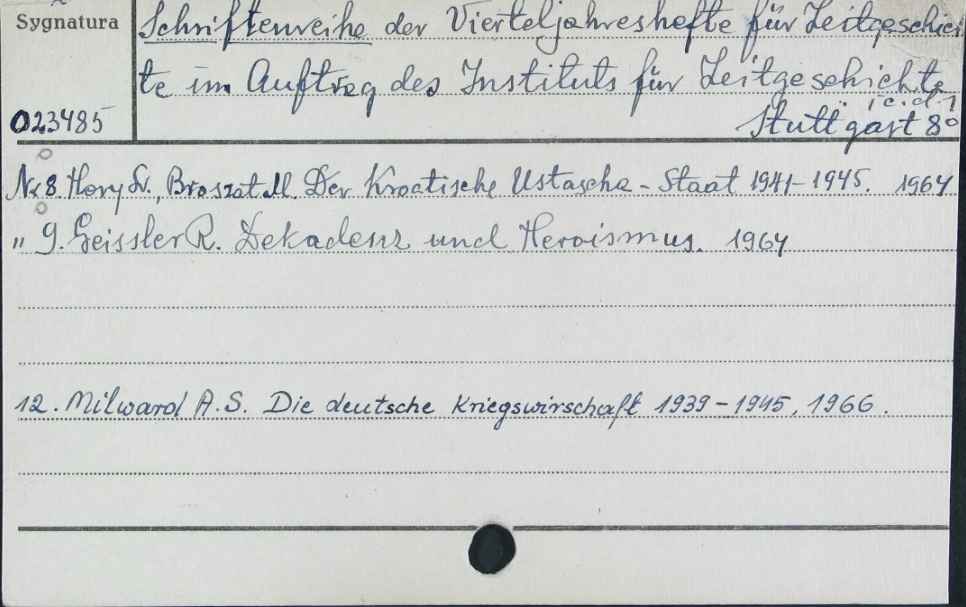 Sygnatura
Schriftenreihe der Vierteljahreshefte für Zeitgeschich
te im Auftrag des Instituts für Zeitgeschichte
/c.d./
023485
Stuttgart 8°
Nr 8. Hory L., Broszat M. Der Kroatische Ustascha - Staat 1941-1945. 1964
" 9. Geissler R. Dekadenz und Heroismus. 1964
12. Milward A.S. Die deutsche Kriegswirschaft 1939-1945, 1966.